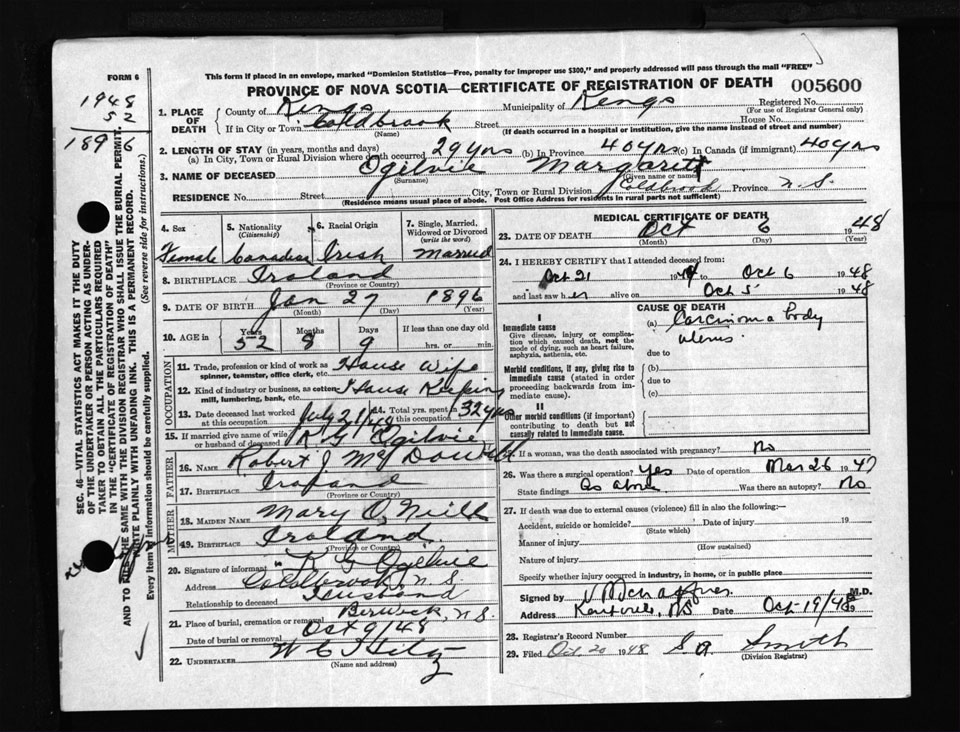 FORM 6
This form if placed in an envelope, marked "Dominion Statistics—Free, penalty for improper use $300," and properly addressed will pass through the mail "FREE"
PROVINCE OF NOVA SCOTIA—CERTIFICATE OF REGISTRATION OF DEATH 005600
1948
52
1896
1. PLACE OF DEATH County of Kings Municipality of Kings Registered No.
(For use of Registrar General only)
If in City or Town Coldbrook Street House No.
(Name) (If death occurred in a hospital or institution, give the name instead of street and number)
2. LENGTH OF STAY (in years, months and days)
(a) In City, Town or Rural Division where death occurred 29 yrs (b) In Province 40 yrs (c) In Canada (if immigrant) 40 yrs
3. NAME OF DECEASED Ogilvie Margaret
(Surname) (Given name or names)
RESIDENCE No. Street City, Town or Rural Division Coldbrook Province N.S.
(Residence means usual place of abode. Post Office Address for residents in rural parts not sufficient)
4. Sex 5. Nationality (Citizenship) 6. Racial Origin 7. Single, Married, Widowed or Divorced (write the word)
Female Canadian Irish Married
8. BIRTHPLACE Ireland
(Province or Country)
9. DATE OF BIRTH Jan 27 1896
(Month) (Day) (Year)
10. AGE in Years Months Days If less than one day old
52 8 9 hrs. or min.
OCCUPATION
11. Trade, profession or kind of work as spinner, teamster, office clerk, etc. House Wife
12. Kind of industry or business, as cotton-mill, lumbering, bank, etc. House Keeping
13. Date deceased last worked at this occupation July 21/48 14. Total yrs. spent in this occupation 32 yrs
15. If married give name of wife or husband of deceased R G Ogilvie
FATHER
16. Name Robert J. McDowell
17. Birthplace Ireland
(Province or Country)
MOTHER
18. MAIDEN NAME Mary O'Neill
19. Birthplace Ireland
(Province or Country)
20. Signature of informant R G Ogilvie
Address Coldbrook, N.S.
Relationship to deceased Husband
21. Place of burial, cremation or removal Berwick, N.S.
Date of burial or removal Oct 9/48
22. UNDERTAKER
(Name and address)
MEDICAL CERTIFICATE OF DEATH
23. DATE OF DEATH Oct 6 1948
(Month) (Day) (Year)
24. I HEREBY CERTIFY that I attended deceased from:
Oct 21 to Oct 6 1948
and last saw her alive on Oct 5 1948
CAUSE OF DEATH
I
Immediate cause
Give disease, injury or complication which caused death, not the mode of dying, such as heart failure, asphyxia, asthenia, etc.
(a) Carcinoma body uterus.
due to
Morbid conditions, if any, giving rise to immediate cause (stated in order proceeding backwards from immediate cause).
(b)
due to
(c)
II
Other morbid conditions (if important) contributing to death but not causally related to immediate cause.
25. If a woman, was the death associated with pregnancy? No
26. Was there a surgical operation? Yes Date of operation Mar 26 1947
State findings As above Was there an autopsy? No
27. If death was due to external causes (violence) fill in also the following:—
Accident, suicide or homicide? Date of injury 19
(State which)
Manner of injury
(How sustained)
Nature of injury
Specify whether injury occurred in industry, in home, or in public place
Signed by M.D.
Address Kentville, NS Date Oct 19/48
28. Registrar's Record Number
29. Filed Oct. 20 1948 S A Smith
(Division Registrar)
SEC. 46—VITAL STATISTICS ACT MAKES IT THE DUTY
OF THE UNDERTAKER OR PERSON ACTING AS UNDERTAKER TO OBTAIN ALL THE PARTICULARS REQUIRED
IN THE "CERTIFICATE OF REGISTRATION OF DEATH"
AND TO FILE THE SAME WITH THE DIVISION REGISTRAR WHO SHALL ISSUE THE BURIAL PERMIT.
WRITE PLAINLY WITH UNFADING INK. THIS IS A PERMANENT RECORD.
Every item of information should be carefully supplied. (See reverse side for instructions.)